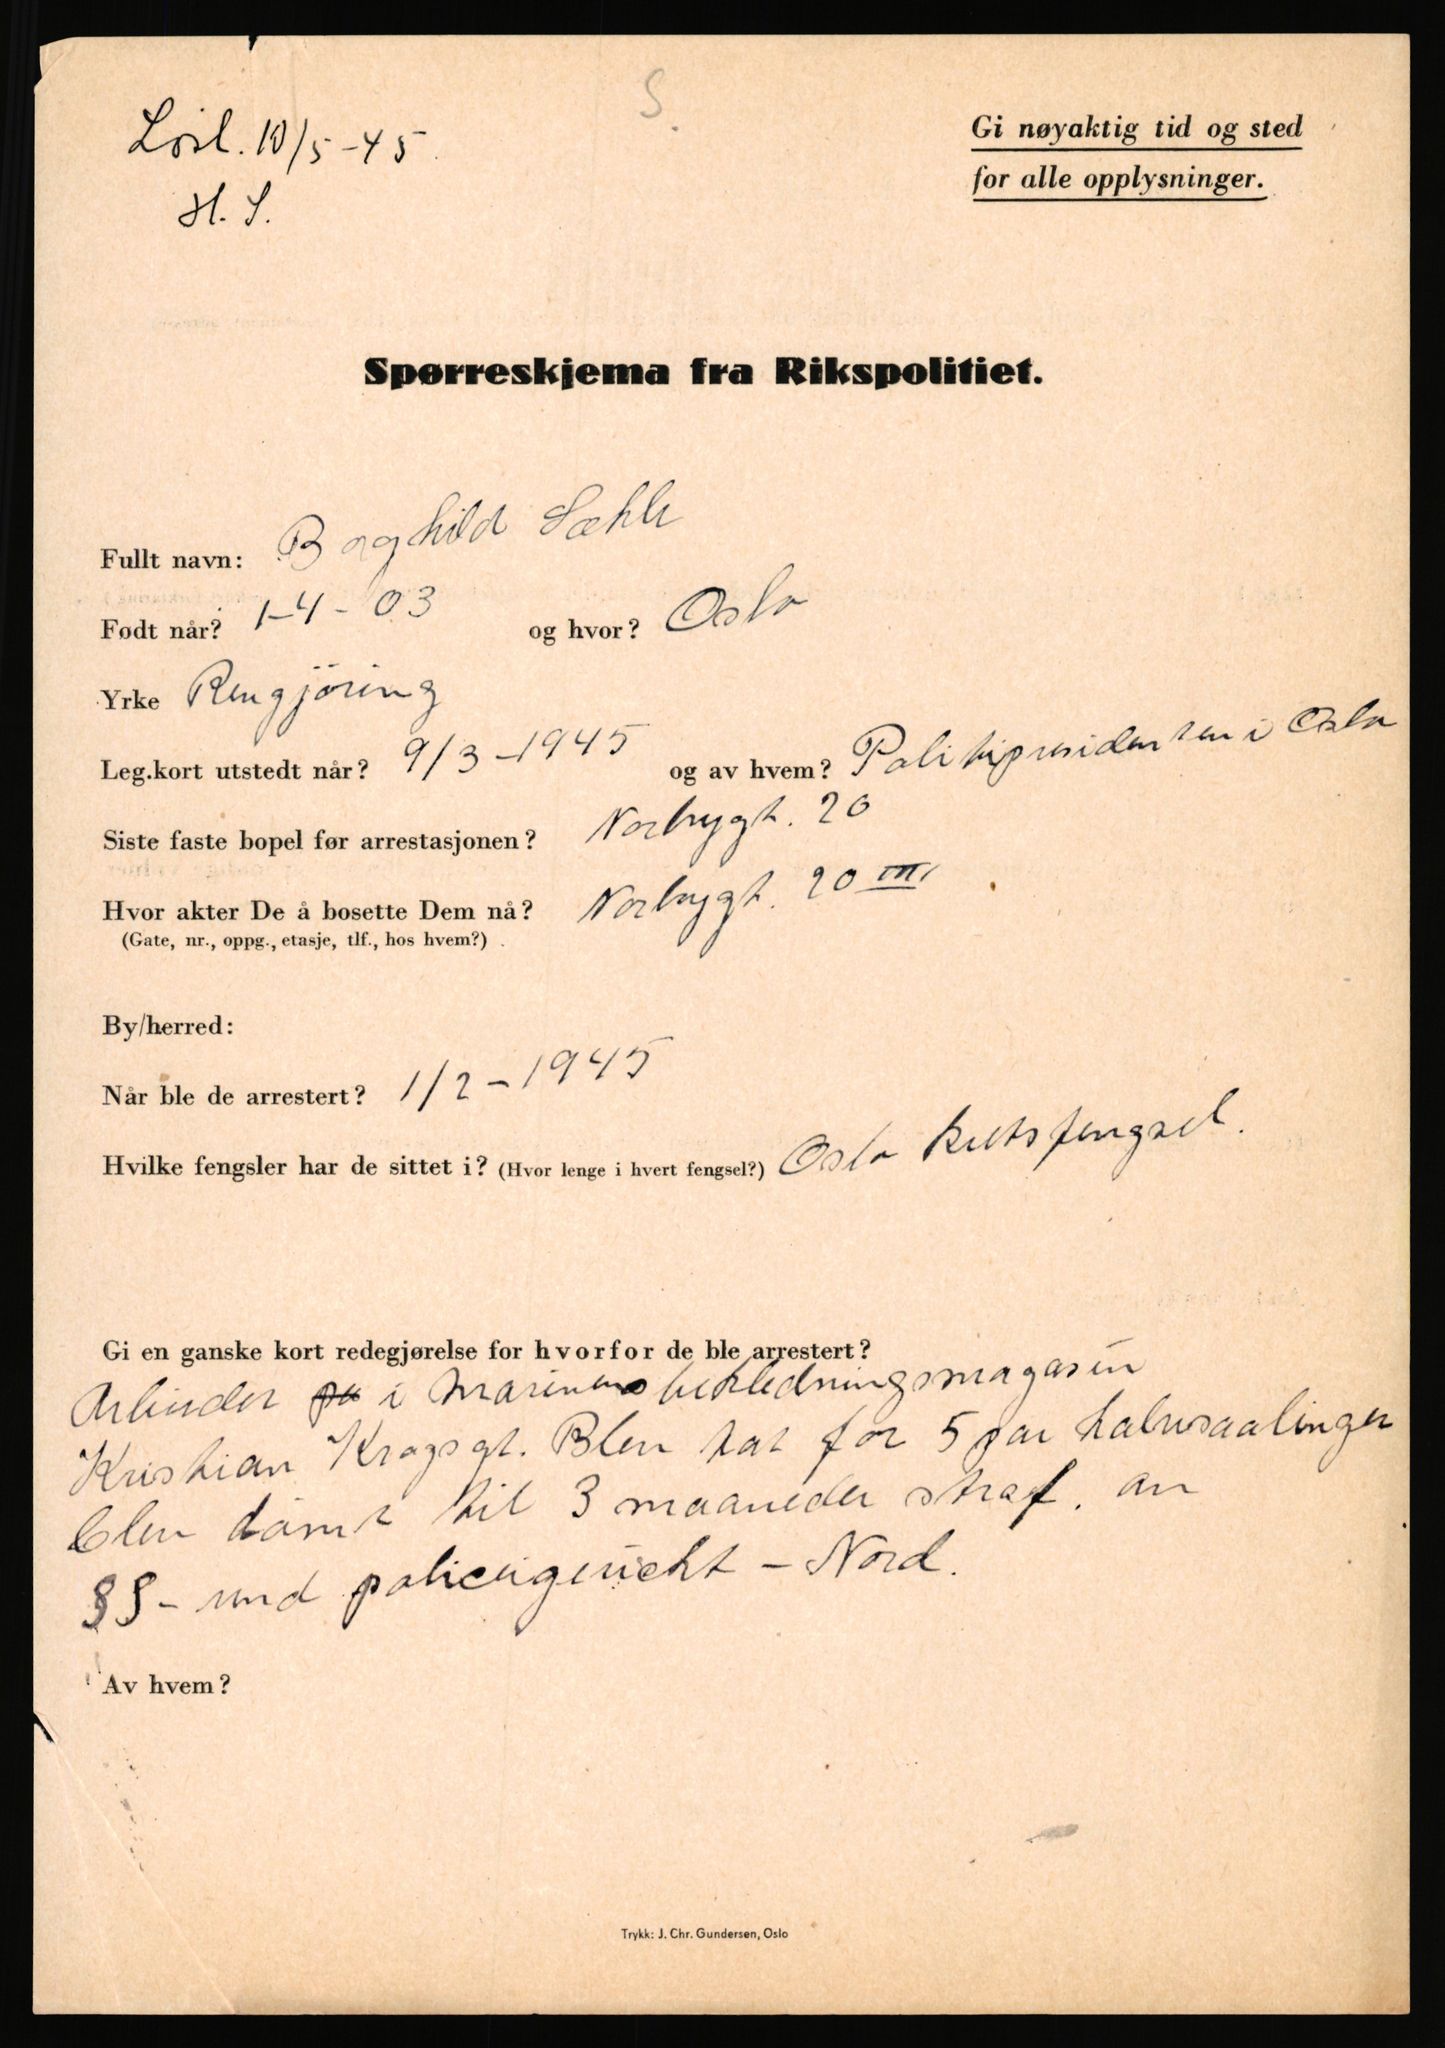 S.
Løsl. 10/5-45
H. S.
Gi nøyaktig tid og sted
for alle opplysninger.
Spørreskjema fra Rikspolitiet.
Fullt navn: Borghild Sæhle
Født når? 1-4-03 og hvor? Oslo
Yrke Rengjøring
Leg.kort utstedt når? 9/3-1945 og av hvem? Politipresidenten i Oslo
Siste faste bopel før arrestasjonen? Norbygt. 20
Hvor akter De å bosette Dem nå? Norbygt. 20 III
(Gate, nr., oppg., etasje, tlf., hos hvem?)
By/herred:
Når ble de arrestert? 1/2-1945
Hvilke fengsler har de sittet i? (Hvor lenge i hvert fengsel?) Oslo kretsfengsel.
Gi en ganske kort redegjørelse for hvorfor de ble arrestert?
Arbeider på i Marinens bekledningsmagasin
Kristian Krogsgt. Blev tat for 5 par halvsaalinger
blev dømt til 3 maaneder straf. av
SS- und policeigericht - Nord.
Av hvem?
Trykk: J. Chr. Gundersen, Oslo